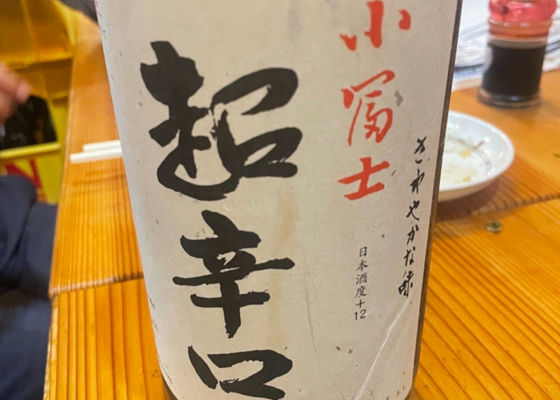 小冨士
超辛口
さわやかな味
日本酒度+12